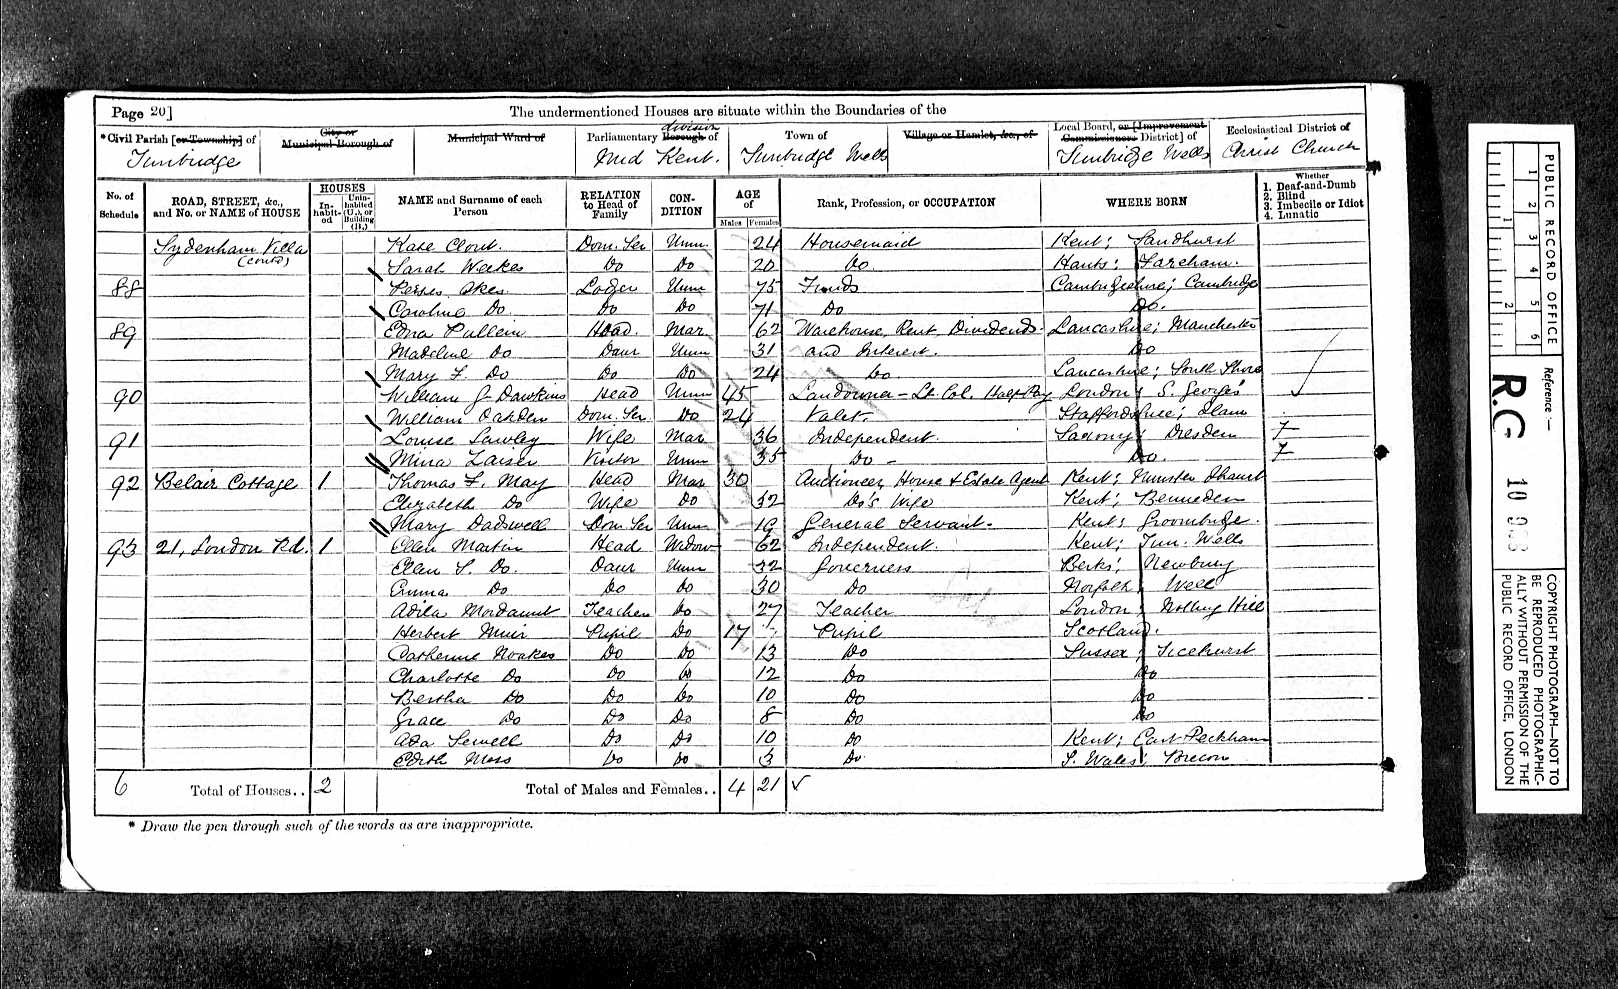 Page 20]
The undermentioned Houses are situate within the Boundaries of the
*Civil Parish [or Township] of
City or
Municipal Borough of
Municipal Ward of
Parliamentary division
Borough of
Town of
Village or Hamlet, &c., of
Local Board, or [Improvement
Commissioners District] of
Ecclesiastical District of
Tunbridge
Mid Kent.
Tunbridge Wells
Tunbridge Wells
Christ Church
No. of
Schedule
ROAD, STREET, &c.,
and No. or NAME of HOUSE
HOUSES
In-
habit-
ed
Unin-
habited
(U.), or
Building
(B.)
NAME and Surname of each
Person
RELATION
to Head of
Family
CON-
DITION
AGE
of
Males
Females
Rank, Profession, or OCCUPATION
WHERE BORN
Whether
1. Deaf-and-Dumb
2. Blind
3. Imbecile or Idiot
4. Lunatic
Sydenham Villa Kate Clout. Dom. Ser Unm. 24 Housemaid Kent; Sandhurst
(contd) Sarah Weekes Do Do 20 Do. Hants; Fareham.
88 Okes Lodger Unm 75 Funds Cambridgeshire; Cambridge
Caroline Do. Do Do 71 Do Do.
89 Edna Pullein Head. Mar. 62 Warehouse, Rent, Dividends. Lancashire; Manchester
Madeline Do Daur Unm 31 and Interest. Do
Mary F. Do Do Do 24 Do. Lancashire; South Shore
90 William G Dawkins Head Unm 45 Landowner - Lt Col. Half Pay London; S. George's
William Oakden Dom. Ser Do 24 Valet. Staffordshire; Ilam
91 Louise Wife Mar 36 Independent. Saxony; Dresden
Mina Visitor Unm 35 Do - Do.
92 Belair Cottage 1 Thomas F. May Head Mar 30 Auctioneer, House & Estate Agent Kent;
Elizabeth Do Wife Do 32 Do's Wife Kent; Benneden
Mary Dadswell Dom. Ser Unm 19 General Servant. Kent; Groombridge.
93 21, London Rd. 1 Ellen Martin Head Widow 62 Independent. Kent; Tun. Wells
Ellen S. Do. Daur Unm 32 Governess Berks; Newbury
Emma Do Do Do 30 Do Norfolk; Well
Adila Mordaunt Teacher Do 27 Teacher London; Notting Hill
Herbert Muir Pupil Do 17 Pupil Scotland.
Catherine Noakes Do Do 13 Do Sussex; Ticehurst
Charlotte Do Do Do 12 Do Do
Bertha Do Do Do 10 Do Do
Grace Do Do Do 8 Do Do
Ada Sewell Do Do 10 Do Kent; East Peckham
Edith Moss Do Do 13 Do S. Wales; Brecon
6 Total of Houses.. 2 Total of Males and Females.. 4 21
* Draw the pen through such of the words as are inappropriate.
PUBLIC RECORD OFFICE
1 2 3 4 5 6
1 2
Reference:—
R.G 10
COPYRIGHT PHOTOGRAPH—NOT TO
BE REPRODUCED PHOTOGRAPHIC-
ALLY WITHOUT PERMISSION OF THE
PUBLIC RECORD OFFICE, LONDON